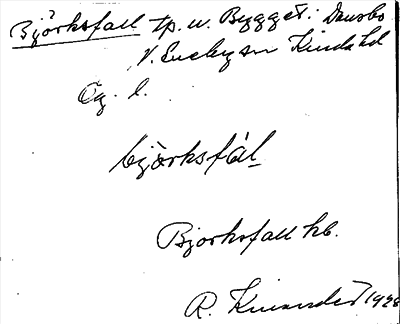 Björksfall tp. u. Bygget: Dansbo
V. Eneby sn Kinda hd
Ög. l.
björksfál
Bjorksfall hb.
R. Kinander 1928